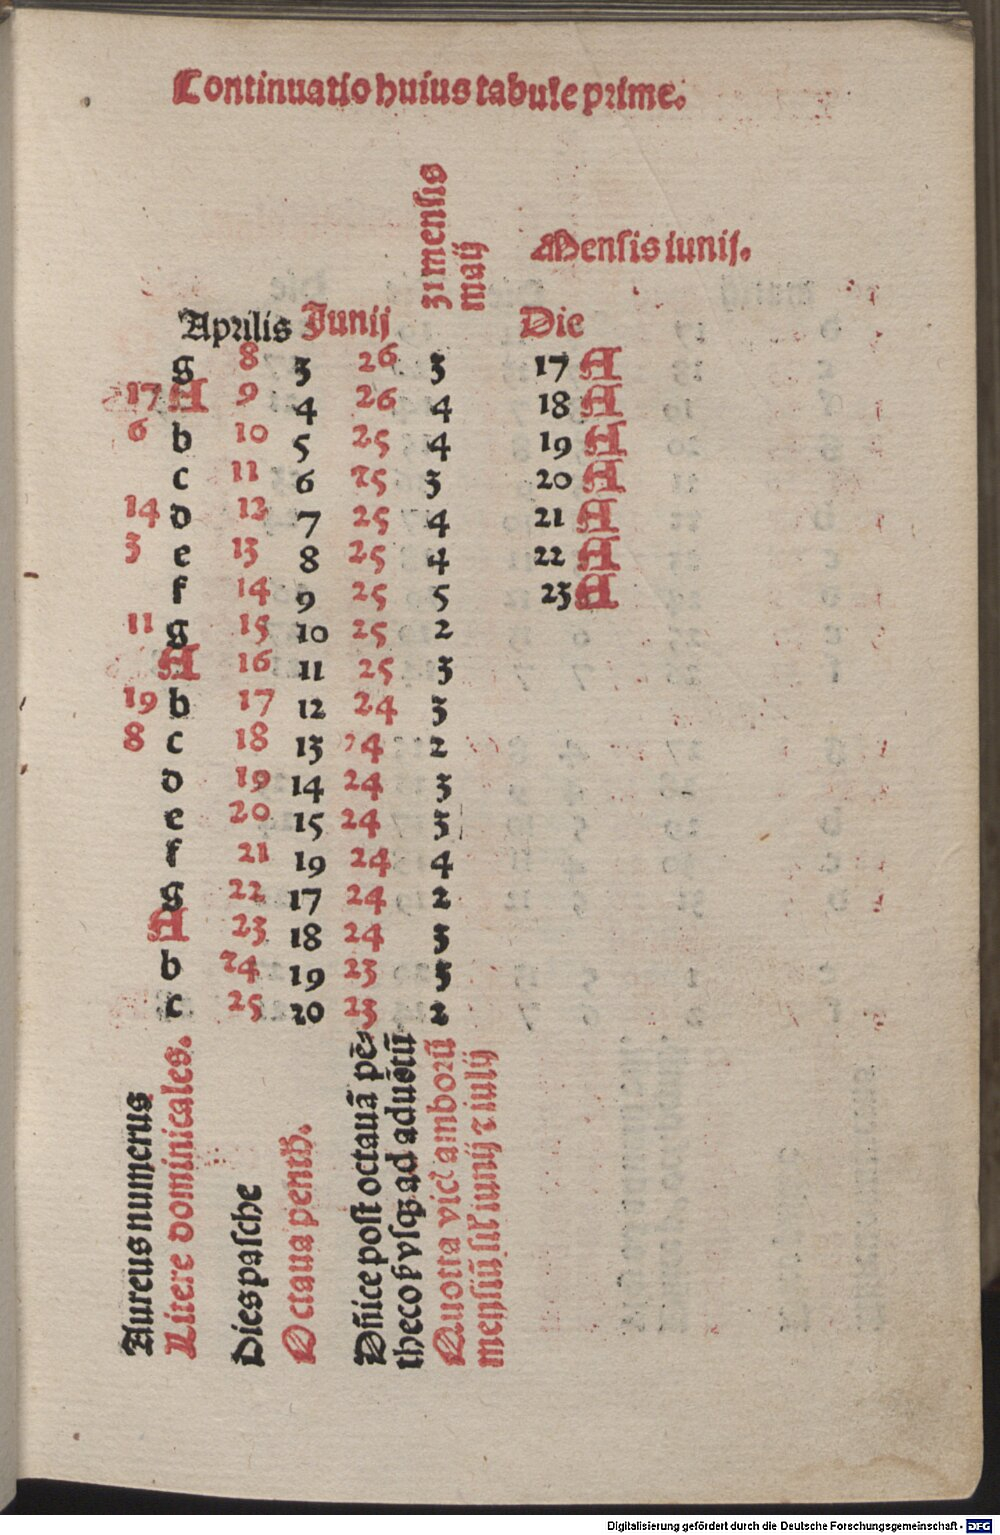 Continuatio huius tabule prime.
31 mensis
maij
Mensis iunij.
Aprilis Junij Die
g 8 3 26 3 17 A
17 A 9 4 26 4 18 A
6 b 10 5 25 4 19 A
c 11 6 25 3 20 A
14 d 12 7 25 4 21 A
3 e 13 8 25 4 22 A
f 14 9 25 5 23 A
11 g 15 10 25 2
A 16 11 25 3
19 b 17 12 24 3
8 c 18 13 24 2
d 19 14 24 3
e 20 15 24 3
f 21 19 24 4
g 22 17 24 2
A 23 18 24 3
b 24 19 23 3
c 25 20 23 2
Aureus numerus
Litere dominicales.
Dies pasche
Octaua
Dñice post octauā
ad aduētū
Quotta amborū
mensiū iunij ⁊ iulij
Digitalisierung gefördert durch die Deutsche Forschungsgemeinschaft - DFG